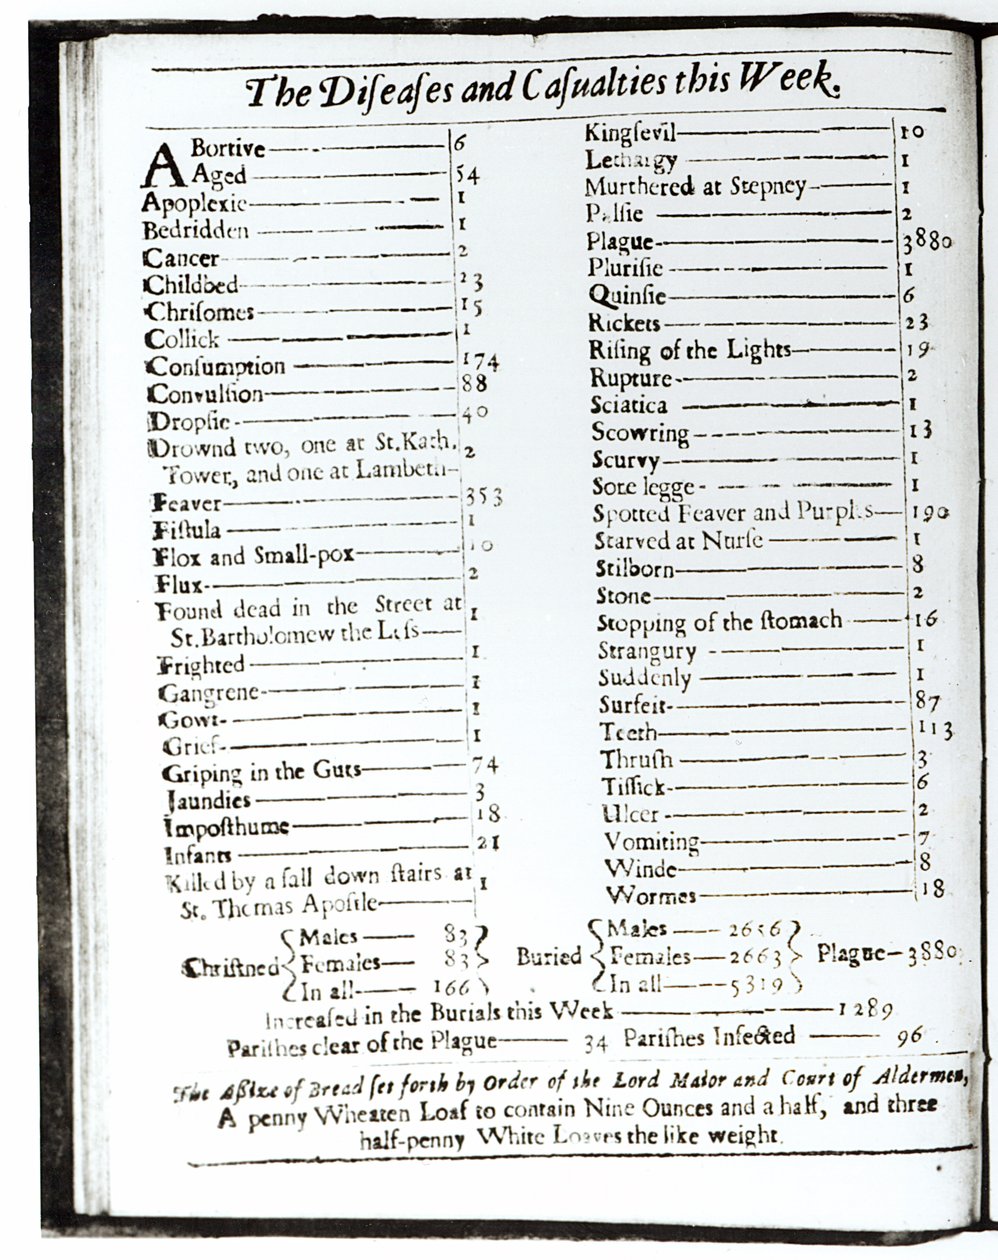 The Diſeaſes and Caſualties this Week.
ABortive 6
Aged 54
Apoplexie 1
Bedridden 1
Cancer 2
Childbed 23
Chriſomes 15
Collick 1
Conſumption 174
Convulſion 88
Dropſie 40
Drownd two, one at St. Kath. Tower, and one at Lambeth 2
Feaver 353
Fiſtula 1
Flox and Small-pox 10
Flux 2
Found dead in the Street at
St. Bartholomew the Leſs 1
Frighted 1
Gangrene 1
Gowt 1
Grief 1
Griping in the Guts 74
Jaundies 3
Impoſthume 18
Infants 21
Killed by a fall down ſtairs at
St. Thomas Apoſtle 1
Kingſevil 10
Lethargy 1
Murthered at Stepney 1
Palſie 2
Plague 3880
Pluriſie 1
Quinſie 6
Rickets 23
Riſing of the Lights 19
Rupture 2
Sciatica 1
Scowring 13
Scurvy 1
Sore legge 1
Spotted Feaver and Purples 190
Starved at Nurſe 1
Stilborn 8
Stone 2
Stopping of the ſtomach 16
Strangury 1
Suddenly 1
Surfeit 87
Teeth 113
Thruſh 3
Tiſſick 6
Ulcer 2
Vomiting 7
Winde 8
Wormes 18
Chriſtned { Males 83 Females 83 In all 166 }
Buried { Males 2656 Females 2663 In all 5319 } Plague 3880
Increaſed in the Burials this Week 1289
Pariſhes clear of the Plague 34 Pariſhes Infected 96
The Aſſize of Bread ſet forth by Order of the Lord Maior and Court of Aldermen,
A penny Wheaten Loaf to contain Nine Ounces and a half, and three
half-penny White Loaves the like weight.